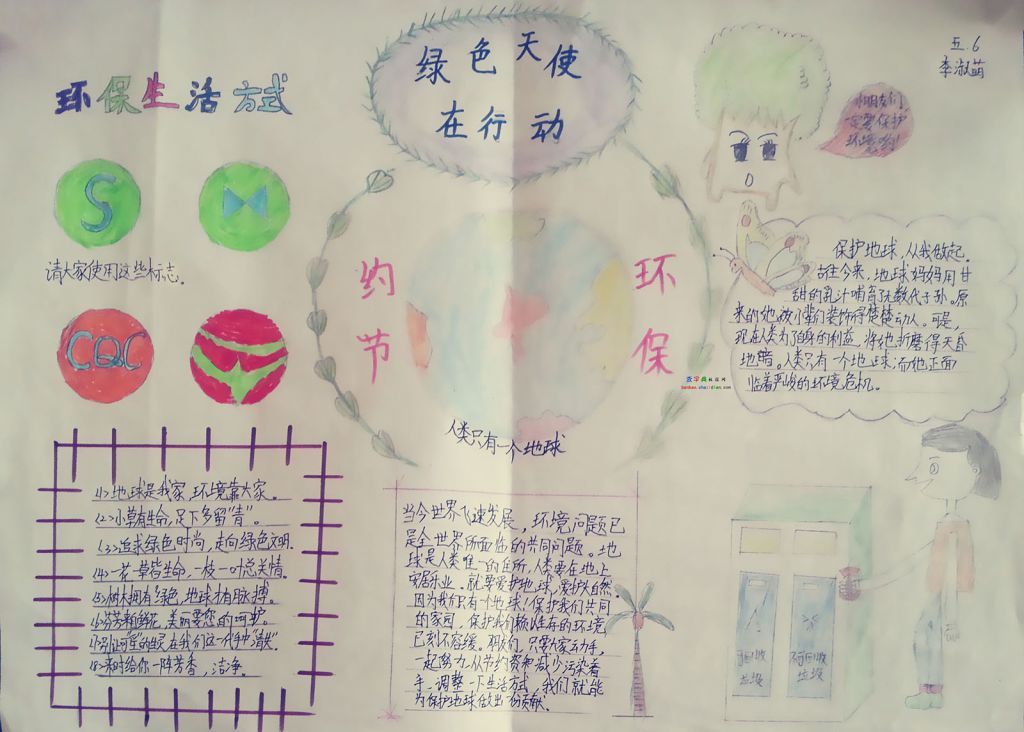 绿色天使
在行动
五.6
李淑萌
环保生活方式
S
请大家使用这些标志。
CQC
节约
环保
人类只有一个地球
朋友们
一定要保护
环境哟!
保护地球,从我做起。
古往今来,地球妈妈用甘
甜的乳汁哺育了无数代子孙。原
来的她被小辈们装饰得楚楚动人。可是,
现在人类为了自身的利益,将她折磨得天昏
地暗。人类只有一个地球;而他正面
临着严峻的环境危机。
查字典板报网
banbao.chazidian.com
(1)地球是我家,环境靠大家。
(2)小草有生命,足下多留“青”。
(3)追求绿色时尚,走向绿色文明。
(4)一花一草皆生命,一枝一叶总关情。
(5)树木拥有绿色,地球才有脉搏。
(6)芬芳来自鲜花,美丽要您的呵护。
(7)别让可爱的
在我们这一代手中“消失”。
(8)来时给你一阵芳香,
洁净。
当今世界飞速发展,环境问题已
是全世界所面临的共同问题。地
球是人类唯一的住所,人类要在地上
安居乐业。就要爱护地球,爱护大自然
因为我们只有一个地球!保护我们共同
的家园,保护我们赖以生存的环境
已刻不容缓。朋友们,只要大家动手,
一起努力,从节约资源减少污染着
手、调整一下生活方式,我们就能
为保护地球做出一份贡献。
可回收
垃圾
不可回收
垃圾